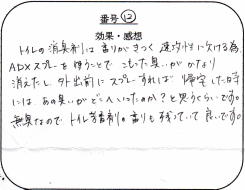 番号⑫
効果・感想
トイレの消臭剤は香りがきつく速攻性に欠ける為、
ADXスプレーを使うことで こもった臭いがかなり
消えたし、外出前にスプレーすれば 帰宅した時
には、あの臭いがどへいったのか?と思うくらいです。
無臭なので、トイレ芳香剤の香りも残っていて良いです。